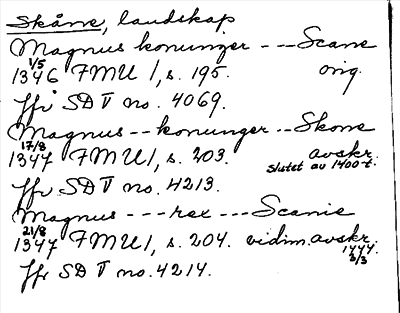 Skåne, landskap
Magnus konunger --- Scane
1/5
1346 FMU 1, s. 195. orig.
Jfr SD V no. 4069.
Magnus -- konunger -- Skone
17/8
1347 FMU 1, s. 203. avskr.
slutet av 1400-t.
Jfr SD V no. 4213.
Magnus --- rex --- Scanie
21/8
1347 FMU 1, s. 204. vidim. avskr.
1444
3/3
Jfr SD V no. 4214.